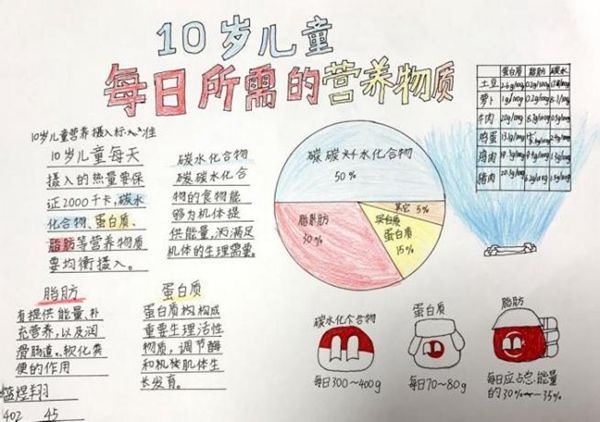 10岁儿童
每日所需的营养物质
10岁儿童营养摄入标准
10岁儿童每天
摄入的热量要保
证2000千卡,碳水
化合物、蛋白质、
脂肪等营养物质
要均衡摄入。
碳水化合物
碳碳水化合
物的食物能
够为机体提
供能量,满足
机体的生理需要。
碳水化合物
50%
脂肪
30%
其它 5%
蛋白质
15%
蛋白质 脂肪 碳水
土豆
萝卜
牛肉
鸡蛋
鸡肉
猪肉
脂肪
直提供能量、补
充营养,以及润
滑肠道。软化粪
便的作用
蛋白质
蛋白质构构成
重要生理活性
物质,调节酶
和机械肌体生
长发育。
碳水化个合物
每日300~400g
蛋白质
每日70~80g
脂肪
每日应占总能量
的30%~35%
402 45